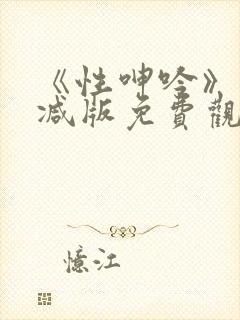 《性呻吟》
减版免費觀
憶江